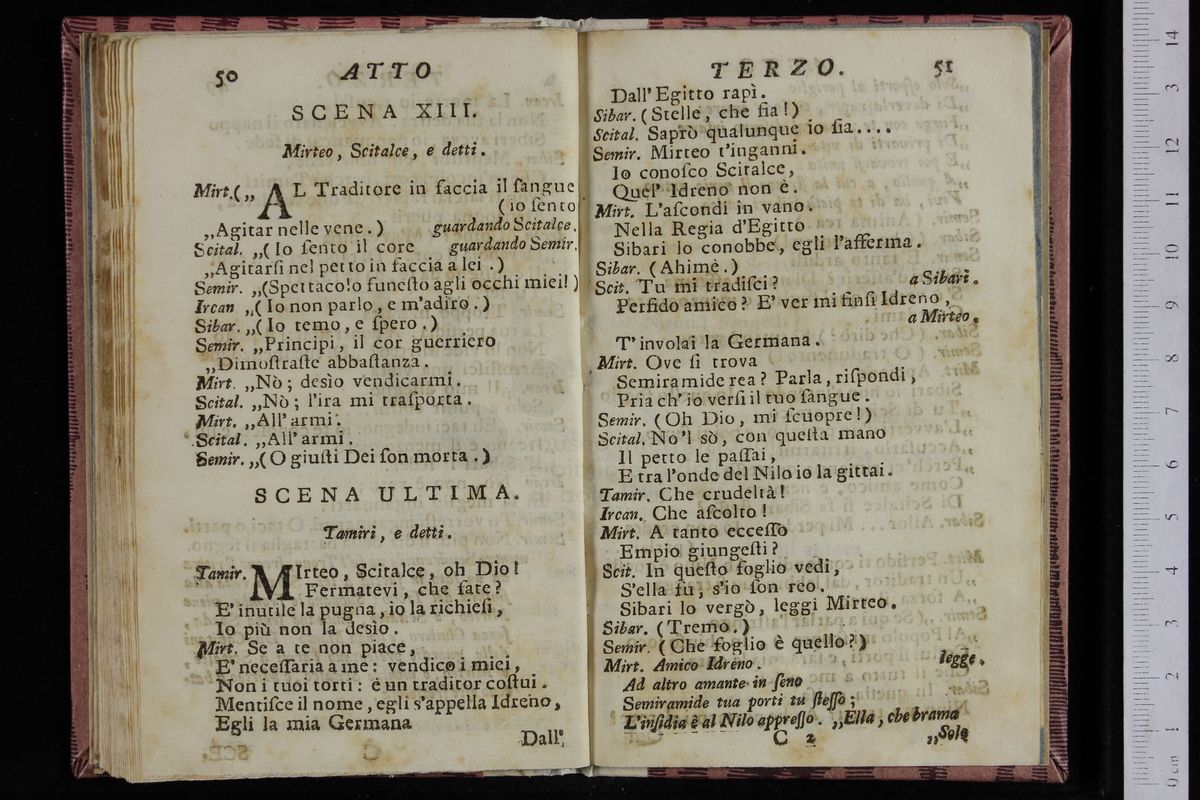 50 ATTO
SCENA XIII.
Mirteo, Scitalce, e detti.
Mirt. („ AL Traditore in faccia il ſangue
(io ſento
„Agitar nelle vene.) guardando Scitalce.
Scital. „(Io ſento il core guardando Semir.
„Agitarſi nel petto in faccia a lei.)
Semir. „(Spettacolo funeſto agli occhi miei!)
Ircan „(Io non parlo, e m'adiro.)
Sibar. „(Io temo, e ſpero.)
Semir. „Principi, il cor guerriero
„Dimoſtraſte abbaſtanza.
Mirt. „Nò; desìo vendicarmi.
Scital. „Nò; l'ira mi traſporta.
Mirt. „All' armi.
Scital. „All' armi.
Semir. „(O giuſti Dei ſon morta.)
SCENA ULTIMA.
Tamiri, e detti.
Tamir. MIrteo, Scitalce, oh Dio!
Fermatevi, che fate?
E' inutile la pugna, io la richieſi,
Io più non la desìo.
Mirt. Se a te non piace,
E' neceſſaria a me: vendico i miei,
Non i tuoi torti: è un traditor coſtui.
Mentiſce il nome, egli s'appella Idreno,
Egli la mia Germana
Dall'
TERZO. 51
Dall' Egitto rapì.
Sibar. (Stelle, che fia!)
Scital. Saprò qualunque io ſia....
Semir. Mirteo t'inganni.
Io conoſco Scitalce,
Quel' Idreno non è.
Mirt. L'aſcondi in vano.
Nella Regia d'Egitto
Sibari lo conobbe, egli l'afferma.
Sibar. (Ahimè.)
Scit. Tu mi tradiſci? a Sibari.
Perfido amico? E' ver mi finſi Idreno,
a Mirteo.
T' involai la Germana.
Mirt. Ove ſi trova
Semiramide rea? Parla, riſpondi,
Pria ch' io verſi il tuo ſangue.
Semir. (Oh Dio, mi ſcuopre!)
Scital. No'l sò, con queſta mano
Il petto le paſſai,
E tra l'onde del Nilo io la gittai.
Tamir. Che crudeltà!
Ircan. Che aſcolto!
Mirt. A tanto ecceſſo
Empio giungeſti?
Scit. In queſto foglio vedi,
S'ella fu, s'io ſon reo.
Sibari lo vergò, leggi Mirteo.
Sibar. (Tremo.)
Semir. (Che foglio è quello?)
Mirt. Amico Idreno. legge.
Ad altro amante in ſeno
Semiramide tua porti tu ſteſſo;
L'inſidia è al Nilo appreſſo. „Ella, che brama
C 2 „Solo